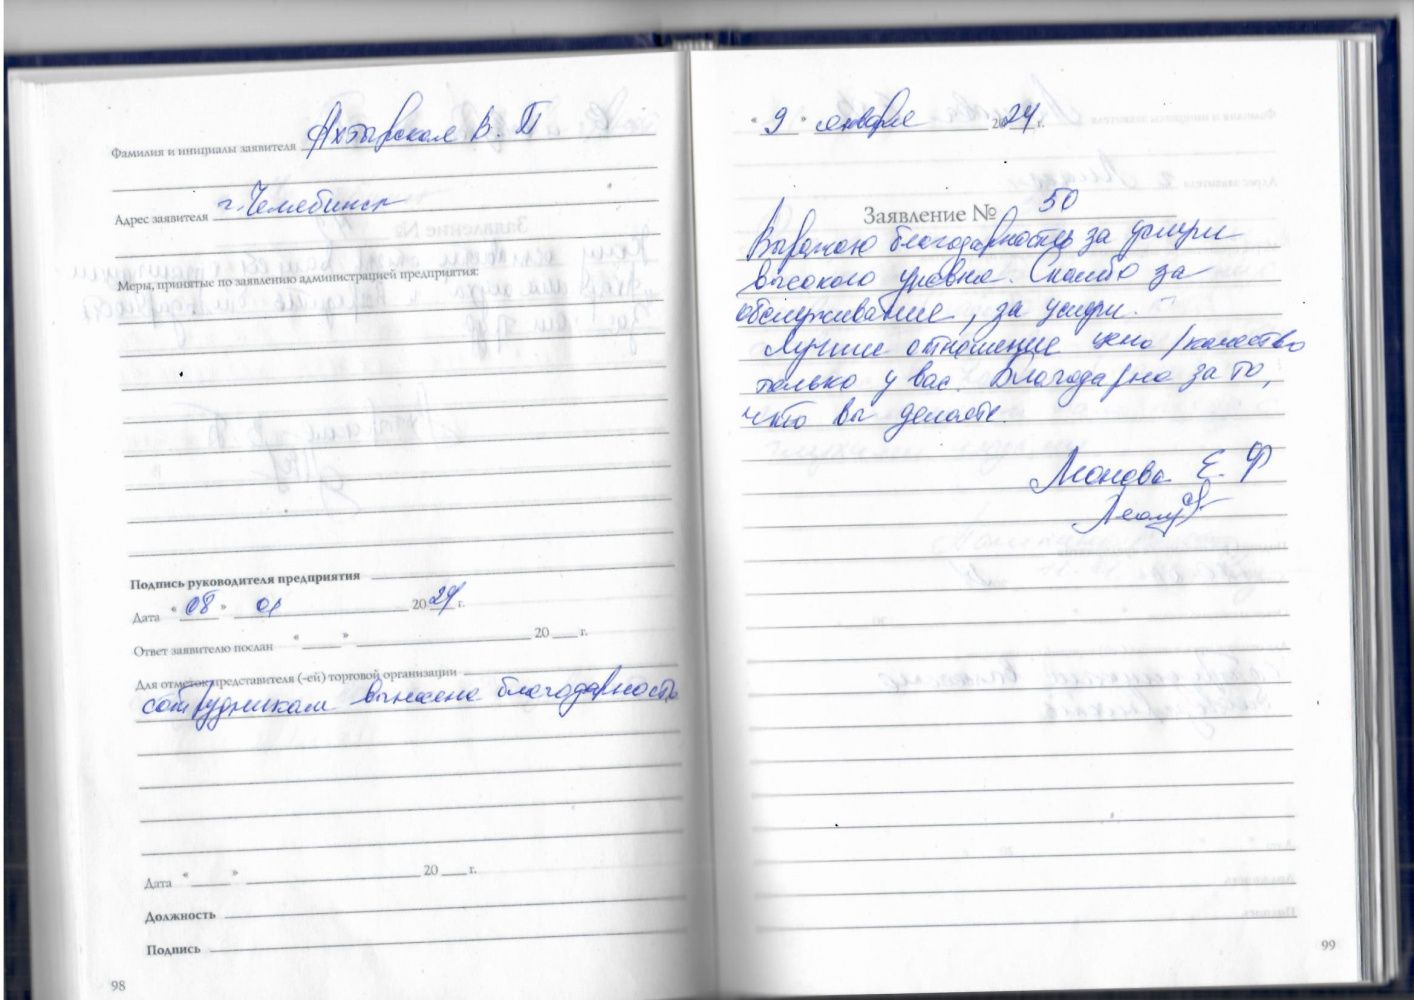 Фамилия и инициалы заявителя Ахтырская В. П
Адрес заявителя г. Челябинск
Меры, принятые по заявлению администрацией предприятия:
Подпись руководителя предприятия
Дата "08" 01 2024 г.
Ответ заявителю послан " " 20 г.
Для отметок представителя (-ей) торговой организации
сотрудникам вынесена благодарность
Дата " " 20 г.
Должность
Подпись
98
"9" января 2024 г.
Заявление № 50
Выражаю благодарность за услуги
высокого уровня. Спасибо за
обслуживание, за услуги.
Лучшие отношение цена/качество
только у вас. Благодарна за то,
что вы делаете.
Е. Ф
99